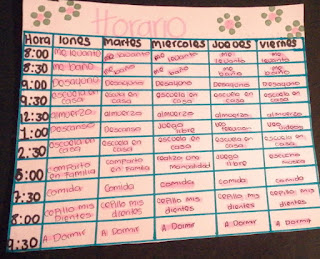 Horario
Hora lunes martes miercoles Jueves viernes
8:00 me levanto me levanto me levanto me levanto me levanto
8:30 me baño me baño me baño me baño me baño
9:00 Desayuno Desayuno Desayuno Desayuno Desayuno
9:30 escuela en casa escuela en casa escuela en casa escuela en casa escuela en casa
12:30 almuerzo almuerzo almuerzo almuerzo almuerzo
1:00 Descanso Descanso Juego libre libre
2:30 escuela en casa escuela en casa escuela en casa escuela en casa escuela en casa
5:00 comparto en familia comparto en familia realizo una manualidad Juego libre
7:30 Comida Comida Comida Comida Comida
8:00 cepillo mis Dientes cepillo mis dientes cepillo mis dientes cepillo mis dientes cepillo mis dientes
9:30 A Dormir A Dormir A Dormir A Dormir A Dormir